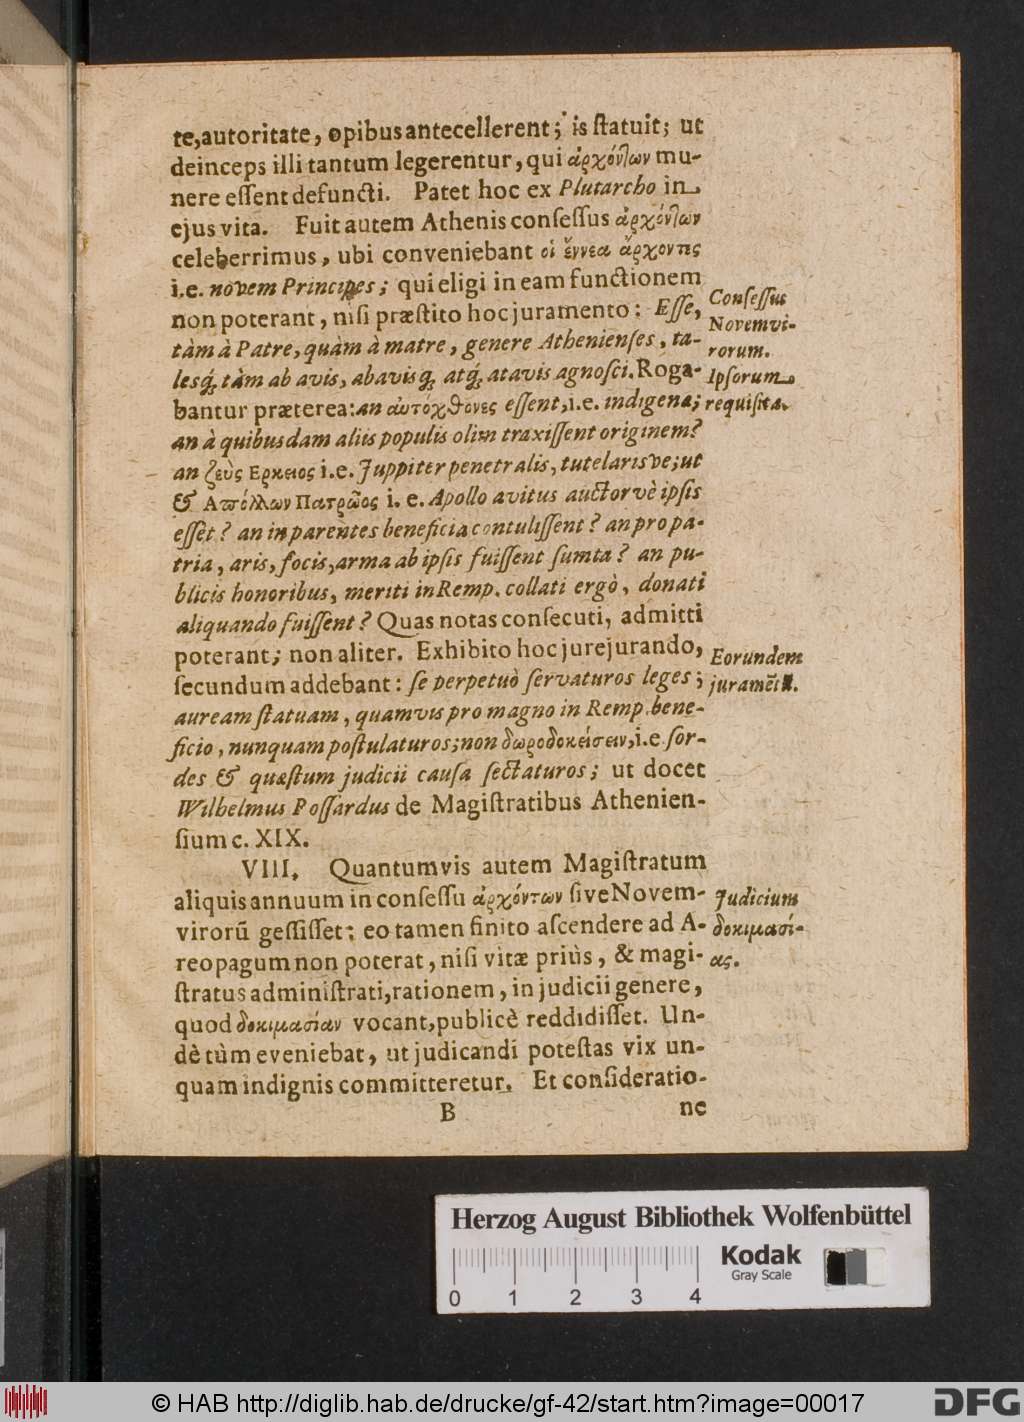 te, autoritate, opibus antecellerent; is ſtatuit; ut
deinceps illi tantum legerentur, qui ἀρχόντων mu-
nere eſſent defuncti. Patet hoc ex Plutarcho in
ejus vita. Fuit autem Athenis conſeſſus ἀρχόντων
celeberrimus, ubi conveniebant οἱ ἔννεα ἄρχοντες
i.e. novem Principes; qui eligi in eam functionem
non poterant, niſi præſtito hoc juramento: Eſſe,
tàm à Patre, quàm à matre, genere Athenienſes, ta-
lesq́; tàm ab avis, abavisq́; atq́; atavis agnoſci. Roga-
bantur præterea: an αὐτόχθονες eſſent, i.e. indigenæ;
an à quibusdam aliis populis olim traxiſſent originem?
an ζεὺς Ερκειος i.e. Juppiter penetralis, tutelarisve; ut
& Απόλλων Πατρῶος i. e. Apollo avitus auctorvè ipſis
eſſèt? an in parentes beneficia contuliſſent? an pro pa-
tria, aris, focis, arma ab ipſis fuiſſent ſumta? an pu-
blicis honoribus, meriti in Remp. collati ergò, donati
aliquando fuiſſent? Quas notas conſecuti, admitti
poterant; non aliter. Exhibito hoc jurejurando,
ſecundum addebant: ſe perpetuò ſervaturos leges;
auream ſtatuam, quamvis pro magno in Remp. bene-
ficio, nunquam poſtulaturos; non δωροδοκείσειν, i.e. ſor-
des & quæſtum judicii cauſa ſectaturos; ut docet
Wilhelmus Poſſardus de Magiſtratibus Athenien-
ſium c. XIX.
Conſeſſus
Novemvi-
rorum.
Ipſorum
requiſita.
Eorundem
juramēt.
VIII. Quantumvis autem Magiſtratum
aliquis annuum in conſeſſu ἀρχόντων ſive Novem-
virorū geſſiſſet; eo tamen finito aſcendere ad A-
reopagum non poterat, niſi vitæ priùs, & magi-
ſtratus adminiſtrati, rationem, in judicii genere,
quod δοκιμασίαν vocant, publicè reddidiſſet. Un-
dè tùm eveniebat, ut judicandi poteſtas vix un-
quam indignis committeretur. Et conſideratio-
Judicium
δοκιμασί-
ας.
B
ne
Herzog August Bibliothek Wolfenbüttel
0 1 2 3 4
Kodak
Gray Scale
© HAB http://diglib.hab.de/drucke/gf-42/start.htm?image=00017
DFG